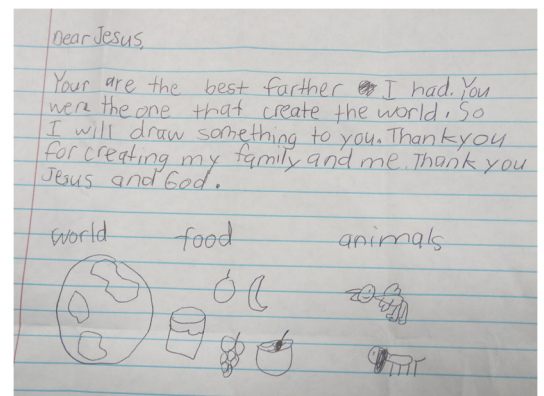 Dear Jesus,
Your are the best farther I had. You
were the one that create the world. So
I will draw something to you. Thank you
for creating my family and me. Thank you
Jesus and God.
world food animals